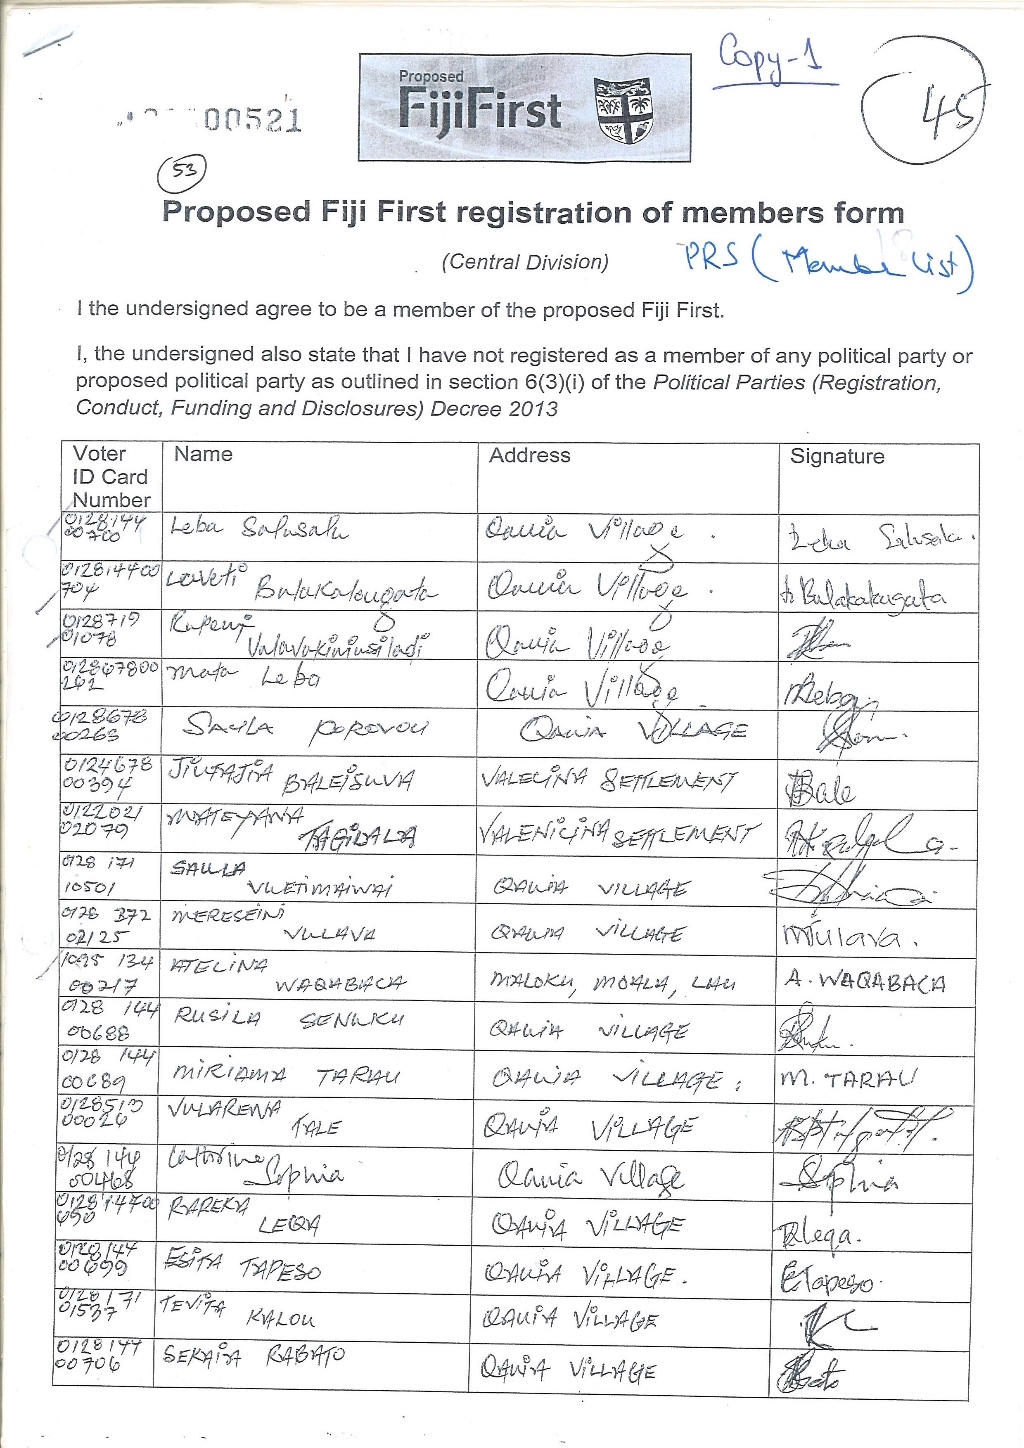 Copy-1
Proposed
FijiFirst
00521
45
53
Proposed Fiji First registration of members form
(Central Division)
PRS (Member List)
I the undersigned agree to be a member of the proposed Fiji First.
I, the undersigned also state that I have not registered as a member of any political party or
proposed political party as outlined in section 6(3)(i) of the Political Parties (Registration,
Conduct, Funding and Disclosures) Decree 2013
Voter ID Card Number Name Address Signature
0128144 00700 Leba Salusalu Qauia Village.
012814400 704 Laveti Bulakalougata Qauia Village. Bulakalougata
0128719 01078 Rupeni Valavakiniusiladi Qauia Village
012867800 262 Mata Leba Qauia Village
0128678 00263 SAULA POROVOU QAUIA VILLAGE
0124678 00394 BALEISUVA SETTLEMENT Bale
0122021 02079 MATEYANA TAGIDALA SETTLEMENT
0128 171 10501 SAULA VUETIMAIWAI QAUIA VILLAGE
0128 372 02125 MERESEINI VULAVA QAUIA VILLAGE
1095 134 00217 ATELINA WAQABACA MALOKU, MOALA, LAU A. WAQABACA
0128 144 00688 RUSILA SENUKU QAUIA VILLAGE
0128 144 00689 MIRIAMA TARAU QAUIA VILLAGE. M. TARAU
0128513 00026 VULAREWA TALE QAUIA VILLAGE
0128 144 00468 Catherine Sophia Qauia Village Sophia
012814400 690 RAREKA LEQA QAUIA VILLAGE Rleqa.
0128144 00699 ESITA TAPESO QAUIA VILLAGE. ETapeso.
0128171 01537 TEVITA KALOU QAUIA VILLAGE
0128144 00706 SEKAIA RABATO QAUIA VILLAGE